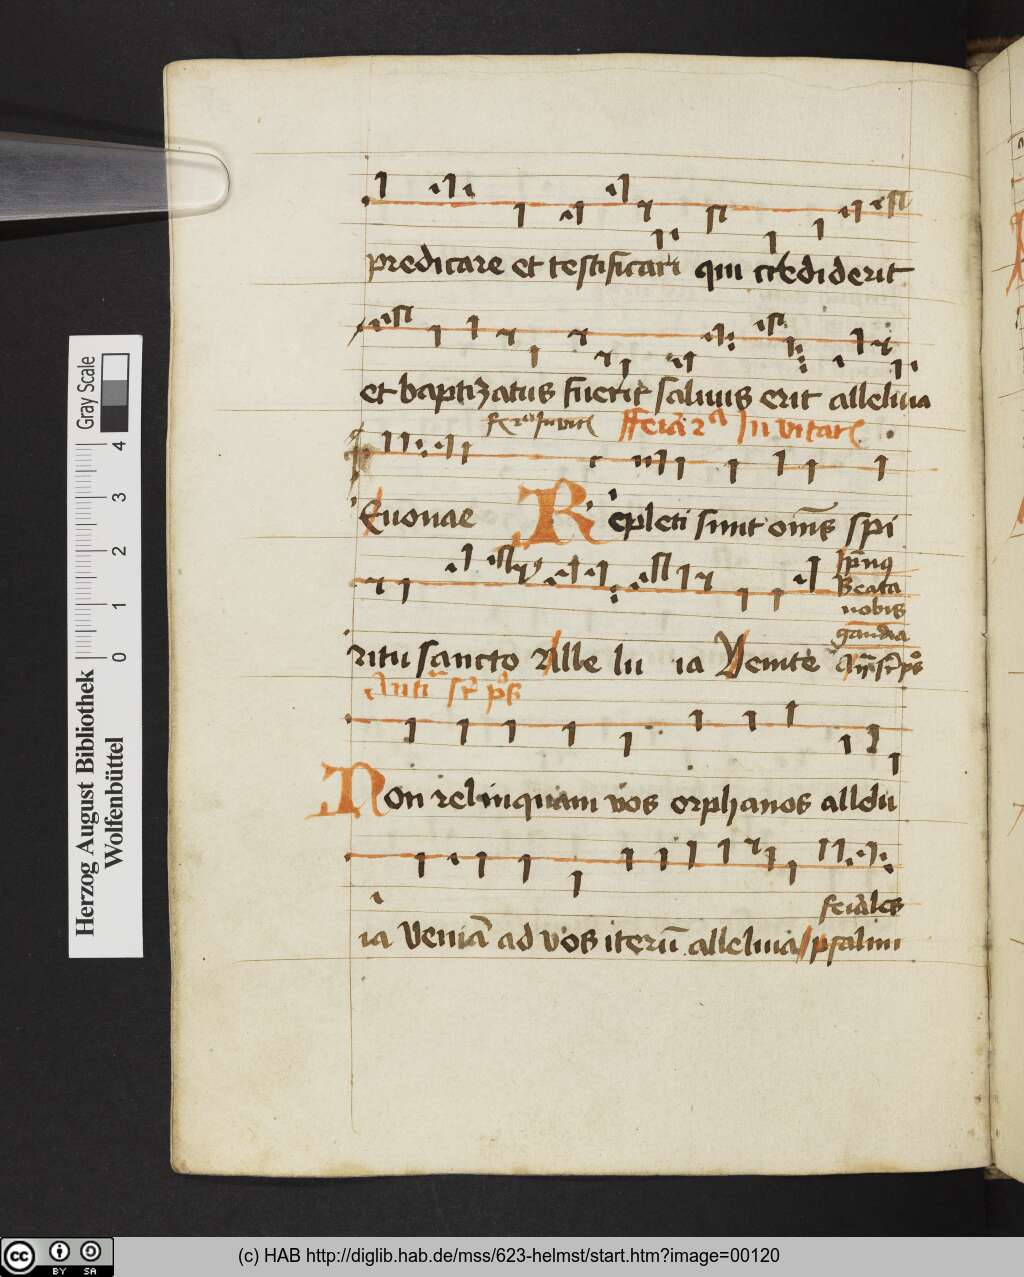 predicare et testificari qui crediderit
et baptizatus fuerit saluus erit alleluia
Feria 2a Inuitat
Euouae Repleti sunt oms spi
ritu sancto Alle lu ia Venite
ȳpnus
Beata
nobis
gaudia
Anti sr ps
Non relinquam vos orphanos allelu
ia Veniā ad vos iterū alleluia psalmi
feriales
Gray Scale
0 1 2 3 4
Herzog August Bibliothek
Wolfenbüttel
cc BY SA
(c) HAB http://diglib.hab.de/mss/623-helmst/start.htm?image=00120